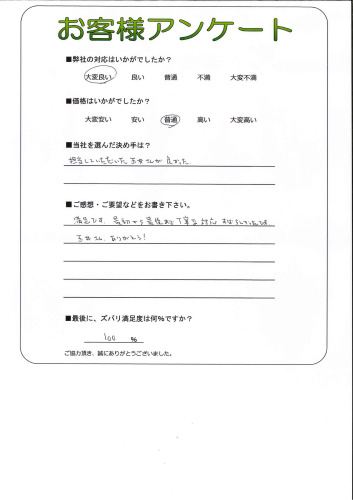 お客様アンケート
■弊社の対応はいかがでしたか？
大変良い 良い 普通 不満 大変不満
■価格はいかがでしたか？
大変安い 安い 普通 高い 大変高い
■当社を選んだ決め手は？
担当していただいた玉井さんが良かった
■ご感想・ご要望などをお書き下さい。
満足です。最初から最後まで丁寧な対応 すばらしかったです
玉井さん、ありがとう！
■最後に、ズバリ満足度は何％ですか？
100 %
ご協力頂き、誠にありがとうございました。